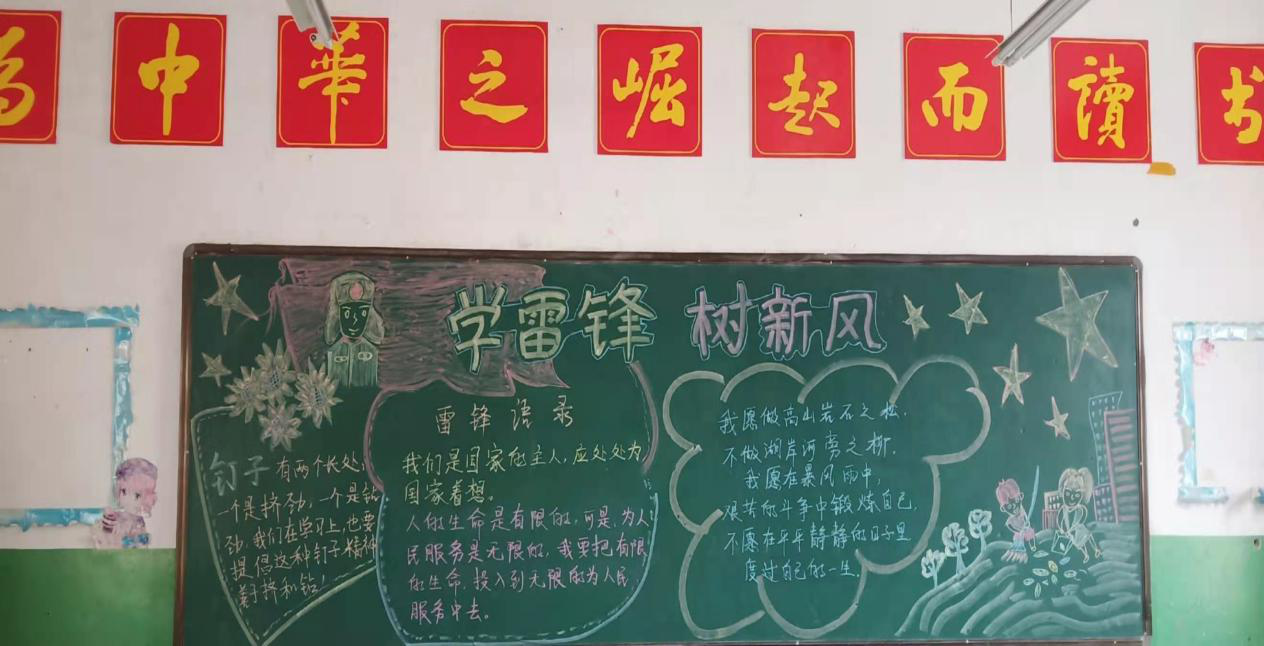 为中華之崛起而讀书
学雷锋 树新风
钉子 有两个长处,
一个是挤劲,一个是钻
劲,我们在学习上,也要
提倡这种钉子精神
善于挤和钻!
雷锋语录
我们是国家的主人,应处处为
国家着想。
人的生命是有限的,可是,为人
民服务是无限的,我要把有限
的生命,投入到无限的为人民
服务中去。
我愿做高山岩石之松,
不做湖岸河旁之柳。
我愿在暴风雨中,
艰苦的斗争中锻炼自己,
不愿在平平静静的日子里
度过自己的一生。